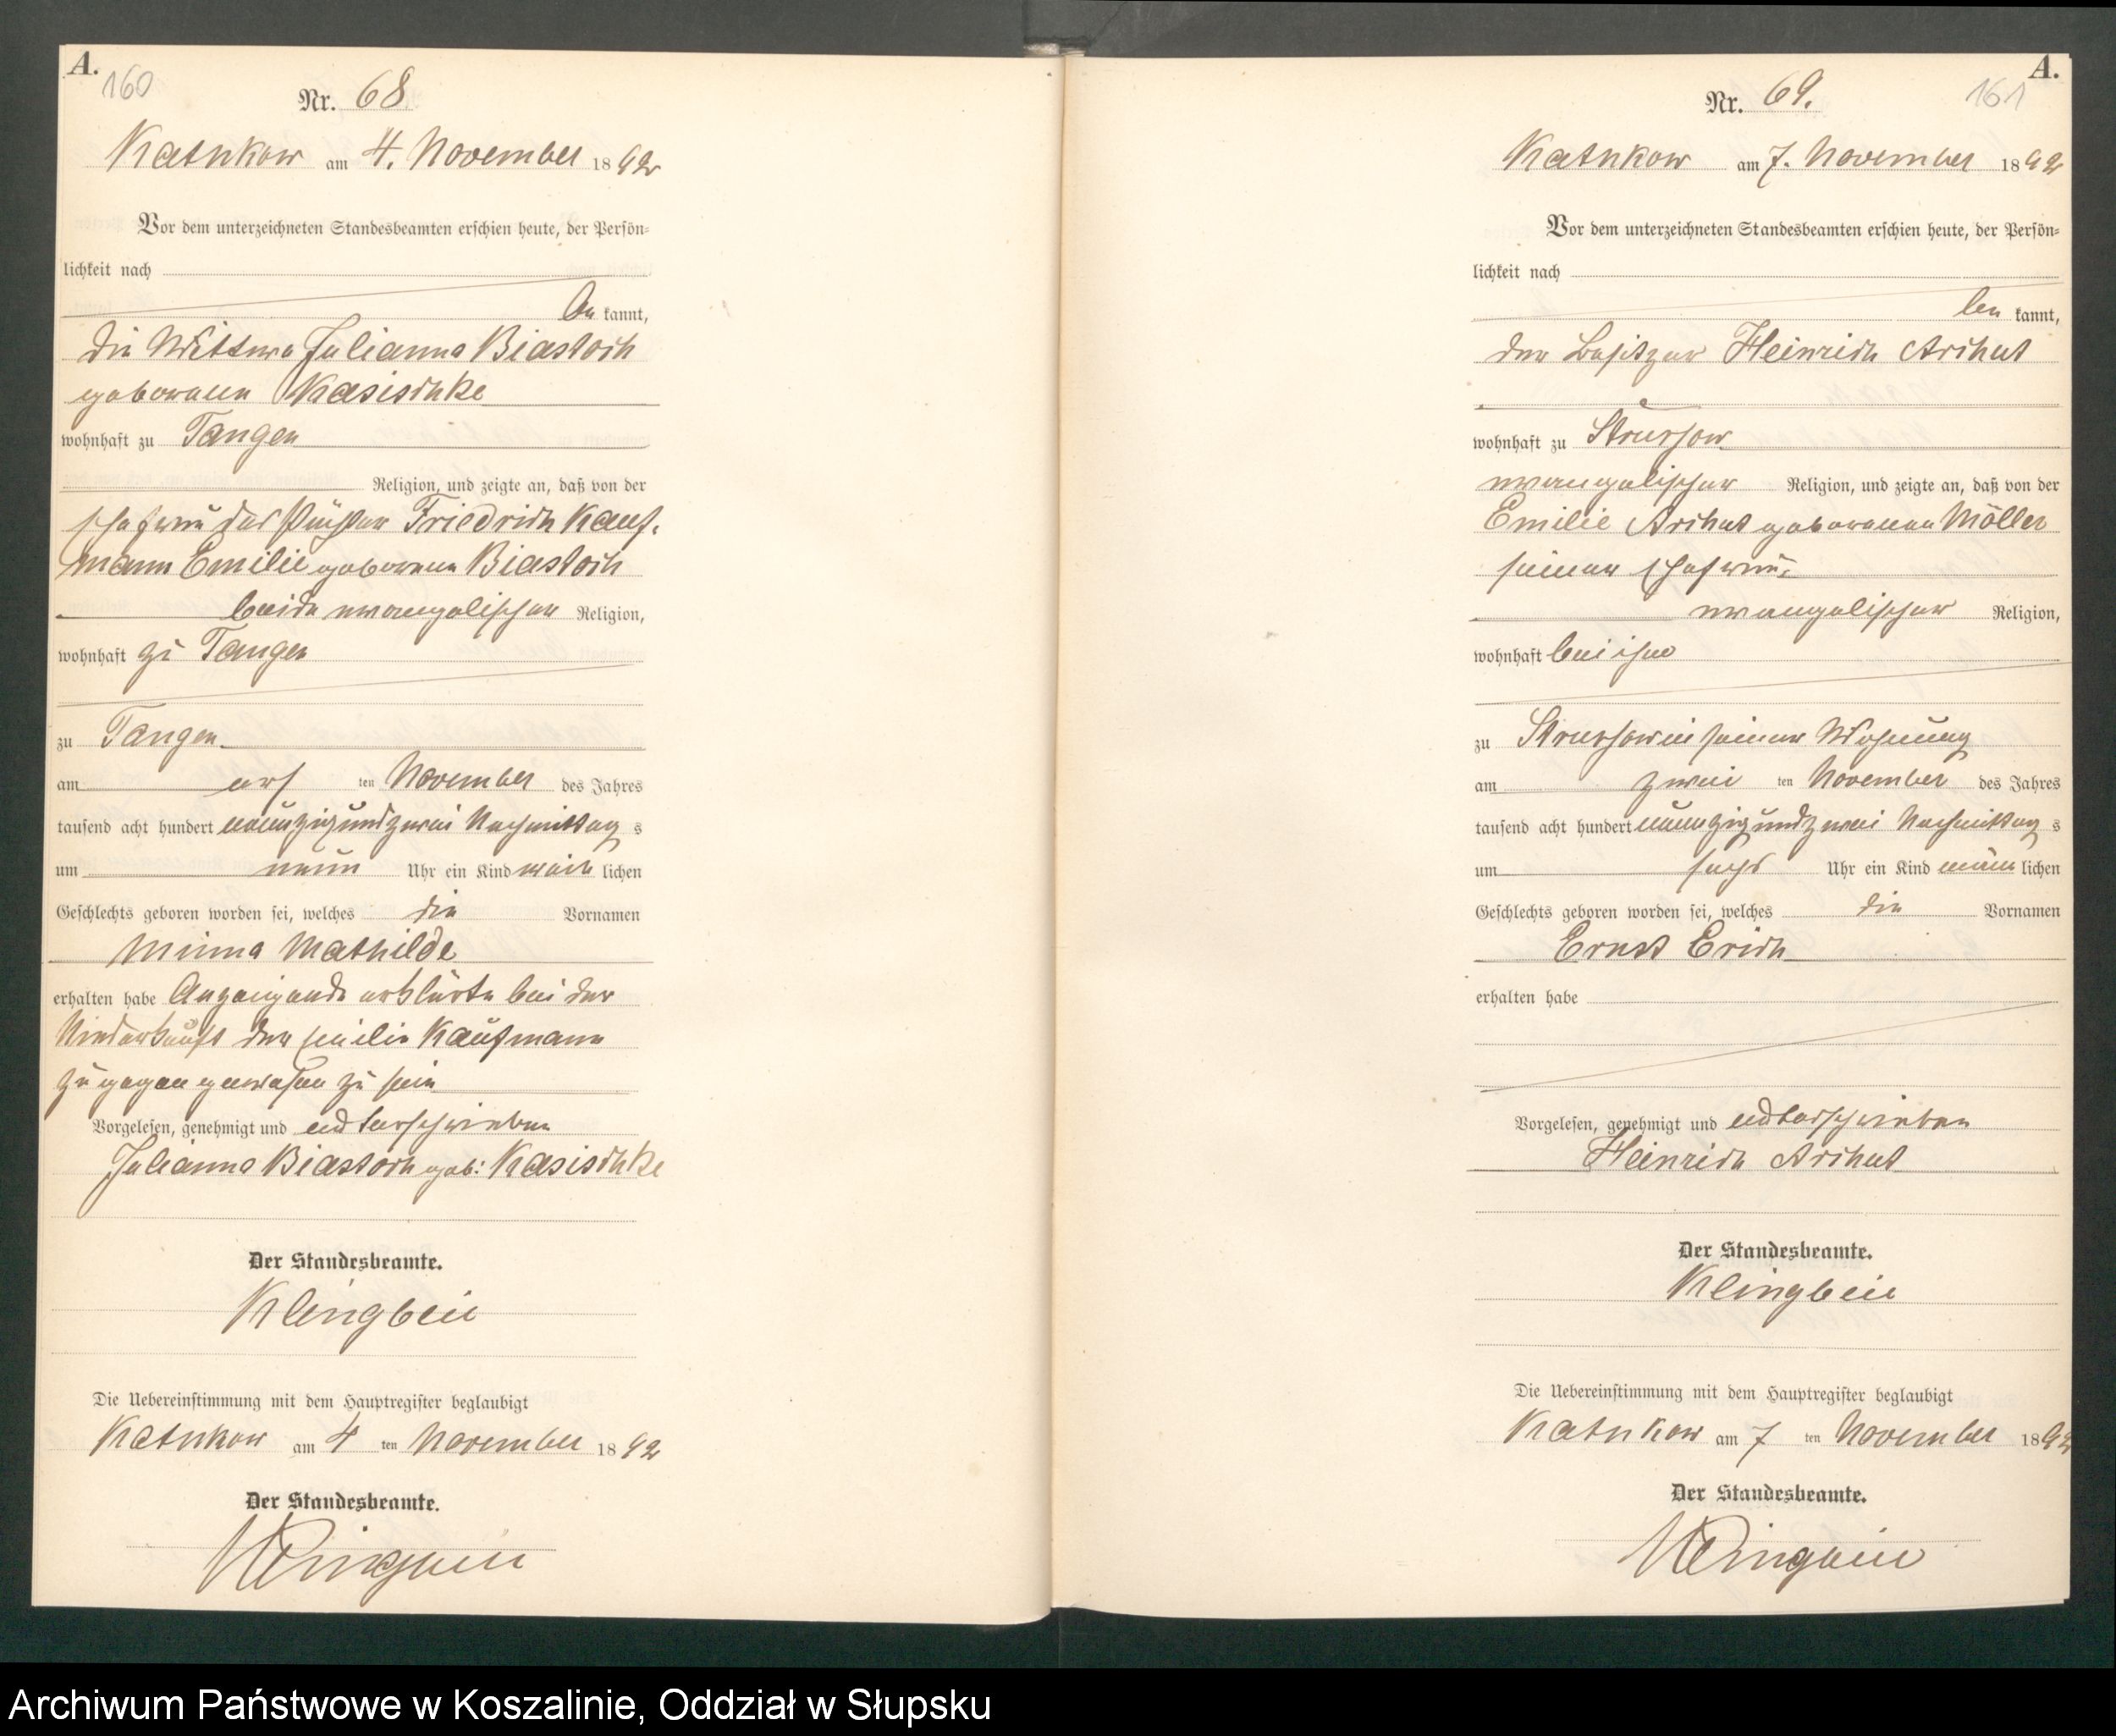 A.
160
Nr. 68
Kathkow am 4. November 1892
Vor dem unterzeichneten Standesbeamten erschien heute, der Persön-
lichkeit nach
be kannt,
die Wittwe Julianna Biastoch
geborene Kasischke
wohnhaft zu Tangen
Religion, und zeigte an, daß von der
Ehefrau des Friedrich Kauf-
mann Emilie geborene Biastoch
beide evangelischer Religion,
wohnhaft zu Tangen
zu Tangen
am ersten November des Jahres
tausend acht hundert neunzig und zwei Nachmittags
um neun Uhr ein Kind weiblichen
Geschlechts geboren worden sei, welches die Vornamen
Minna Mathilde
erhalten habe Anzeigende erklärte bei der
Niederkunft der Emilie Kaufmann
zugegen gewesen zu sein
Vorgelesen, genehmigt und unterschrieben
Julianna Biastoch geb: Kasischke
Der Standesbeamte.
Klingbeil
Die Uebereinstimmung mit dem Hauptregister beglaubigt
Kathkow am 4 ten November 1892
Der Standesbeamte.
Klingbeil
A.
161
Nr. 69.
Kathkow am 7. November 1892
Vor dem unterzeichneten Standesbeamten erschien heute, der Persön-
lichkeit nach
be kannt,
der Besitzer Heinrich Archut
wohnhaft zu Strussow
evangelischer Religion, und zeigte an, daß von der
Emilie Archut geborenen Möller
seiner Ehefrau
evangelischer Religion,
wohnhaft bei ihm
zu Strussow in seiner Wohnung
am zweiten November des Jahres
tausend acht hundert neunzig und zwei Nachmittags
um sechs Uhr ein Kind männlichen
Geschlechts geboren worden sei, welches die Vornamen
Ernst Erich
erhalten habe
Vorgelesen, genehmigt und unterschrieben
Heinrich Archut
Der Standesbeamte.
Klingbeil
Die Uebereinstimmung mit dem Hauptregister beglaubigt
Kathkow am 7 ten November 1892
Der Standesbeamte.
Klingbeil
Archiwum Państwowe w Koszalinie, Oddział w Słupsku